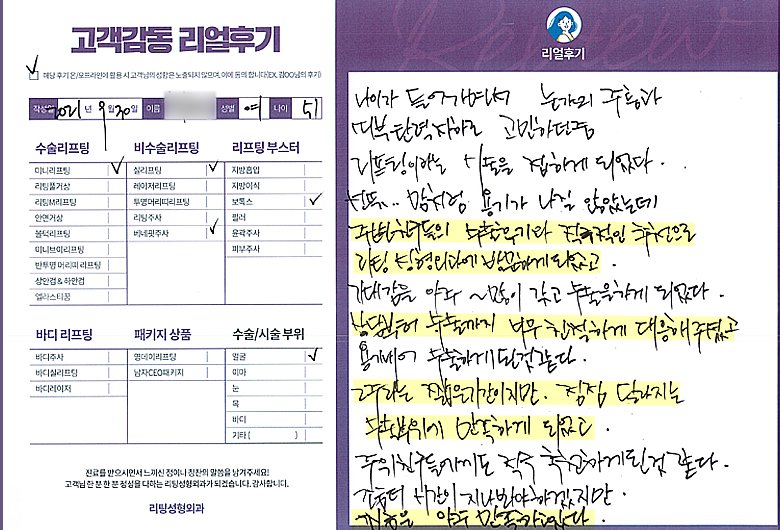 고객감동 리얼후기
해당 후기 온/오프라인에 활용 시 고객님의 성함은 노출되지 않으며, 이에 동의 합니다(EX. 김OO님의 후기)
작성일 2021 년 9 월 30 일 이름 성별 여 나이 51
수술리프팅
미니리프팅
리팅풀거상
리팅M리프팅
안면거상
볼턱리프팅
미니브이리프팅
반투명 머리띠 리프팅
상안검 & 하안검
엘라스티꿈
비수술리프팅
실리프팅
레이저리프팅
투명머리띠리프팅
리팅주사
베네핏주사
리프팅 부스터
지방흡입
지방이식
보톡스
필러
윤곽주사
피부주사
바디 리프팅
바디주사
바디실리프팅
바디레이저
패키지 상품
원데이리프팅
남자CEO패키지
수술/시술 부위
얼굴
이마
눈
목
바디
기타 ( )
진료를 받으시면서 느끼신 점이나 칭찬의 말씀을 남겨주세요!
고객님 한 분 한 분 정성을 다하는 리팅성형외과가 되겠습니다. 감사합니다.
리팅성형외과
Review
리얼후기
나이가 들어가면서 눈가의 주름과
피부탄력저하로 고민하던중
리프팅이라는 시술을 접하게 되었다.
선뜻.. 맘처럼 용기가 나질 않았는데
주변친구들의 수술후기와 적극적인 추천으로
리팅 성형외과에 방문하게 되었고.
기대감을 아주 ~많이 갖고 수술을하게 되었다.
상담부터 수술까지 너무 친절하게 대응해주셨고
용기내어 수술하게 된것같다.
2주라는 짧은기간이지만. 점점 달라지는
수술부위에 만족하게 되었고.
주위친구들에게도 적극 추천하게된것 같다.
좀더 시간이 지나봐야하겠지만.
지금은 아주 만족하고있다.